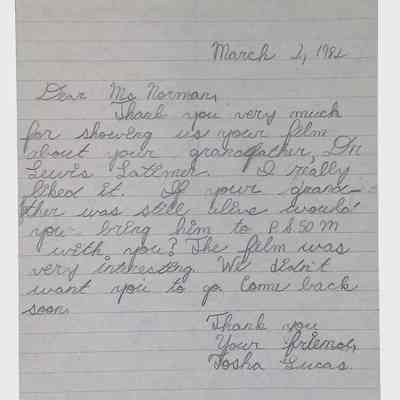 March 2, 1982
Dear Ms Norman,
Thank you very much
for showing us your film
about your grandfather, Dr
Lewis Lattimer. I really
liked it. If your grand-
fther was still alive would
you bring him to P.S. 50 M
with you? The film was
very interesting. We didn't
want you to go. Come back
soon.
Thank you
Your friend,
Tosha Lucas